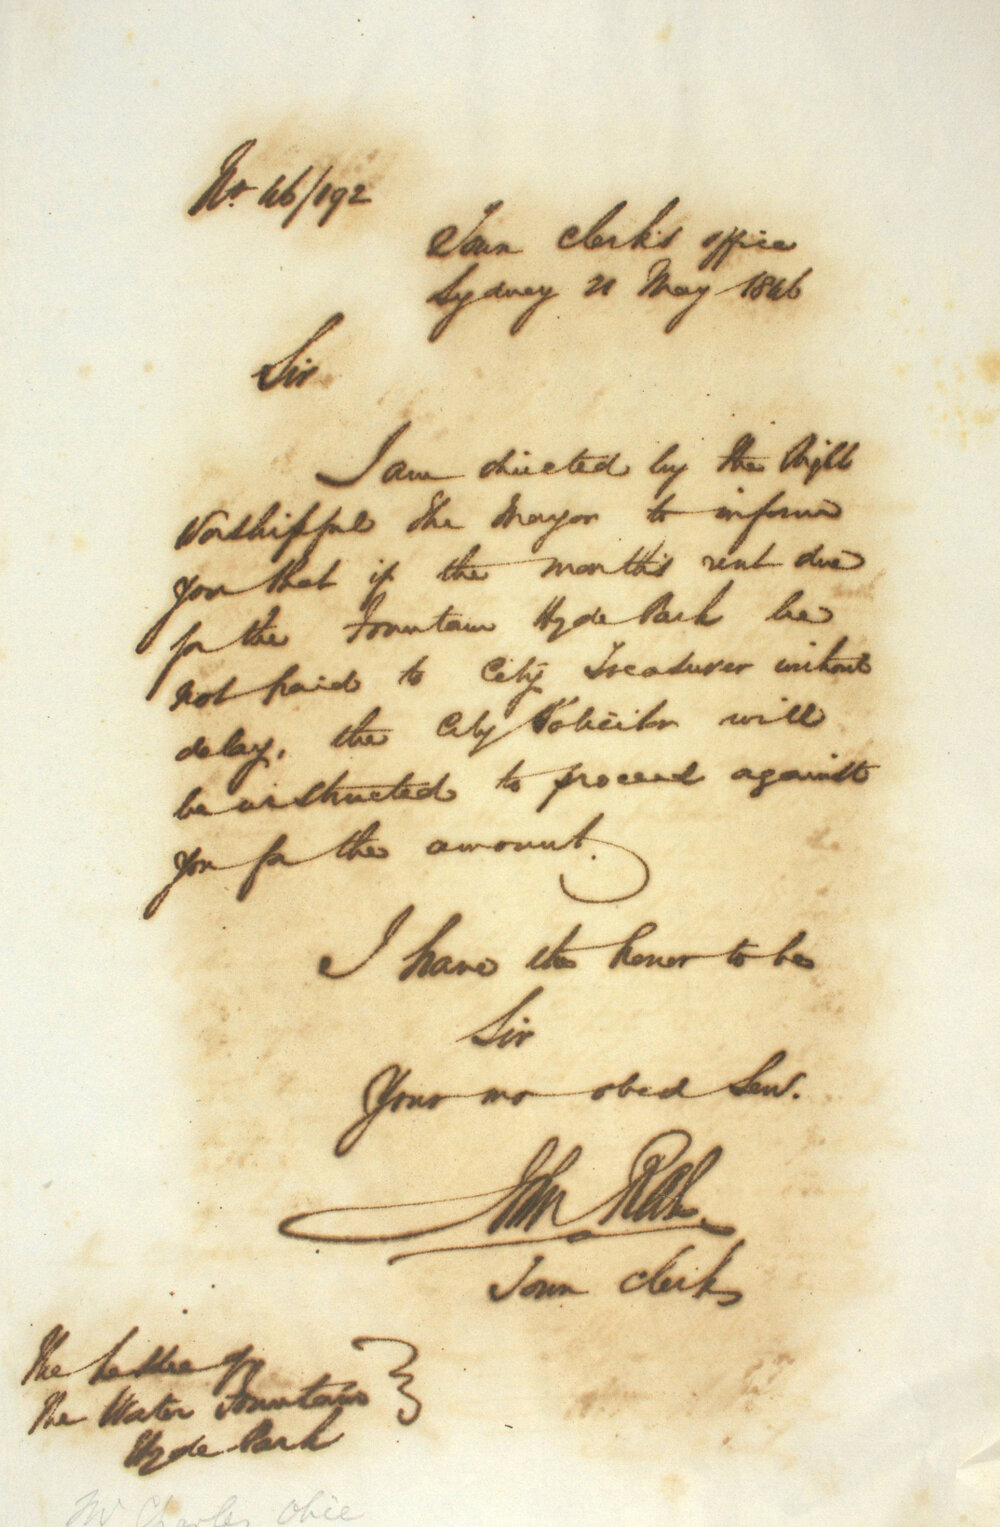 No. 46/192
Town Clerk's office
Sydney 21 May 1846
Sir
I am directed by the Right
Worshipful the Mayor to inform
you that if the month's rent due
for the Fountain Hyde Park be
not paid to City Treasurer without
delay, the City Solicitor will
be instructed to proceed against
you for the amount.
I have the honor to be
Sir
Your mo obed Serv.
John
Town Clerk
The Lessee of
The Water Fountain
Hyde Park
Mr Charles